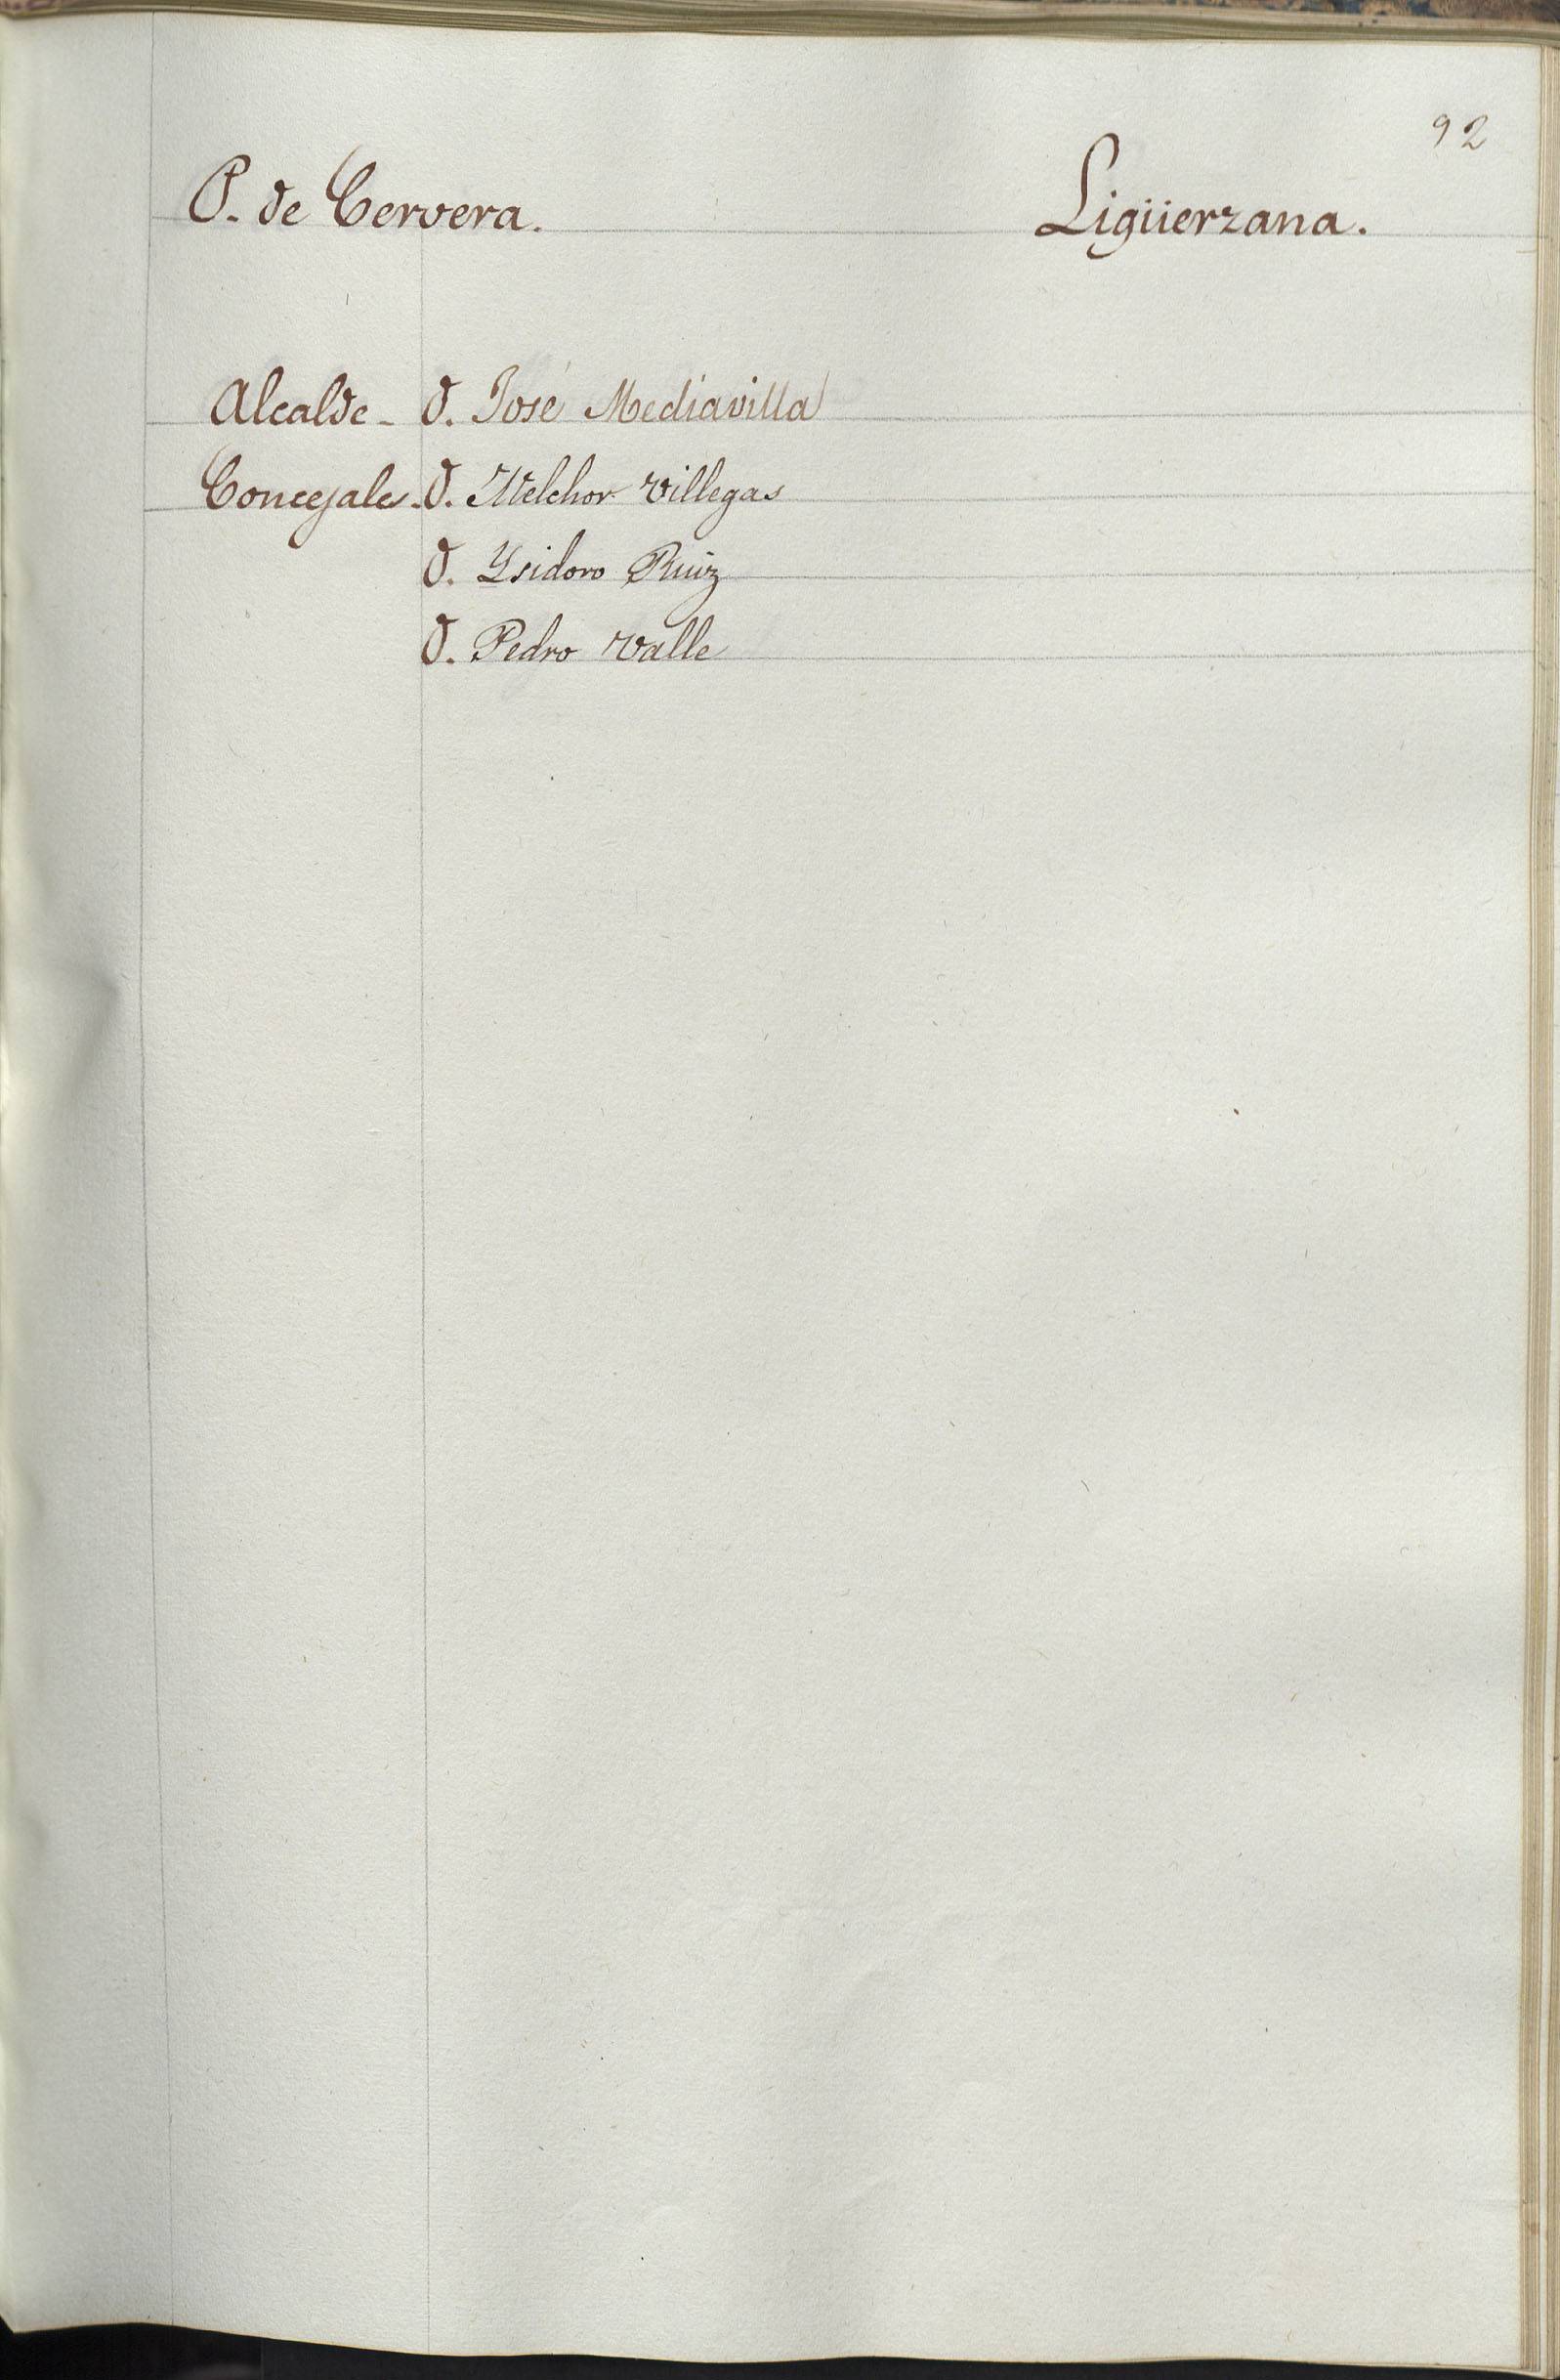 92
P. de Cervera. Ligüerzana.
Alcalde - D. José Mediavilla
Concejales - D. Melchor Villegas
D. Ysidoro Ruiz
D. Pedro Valle